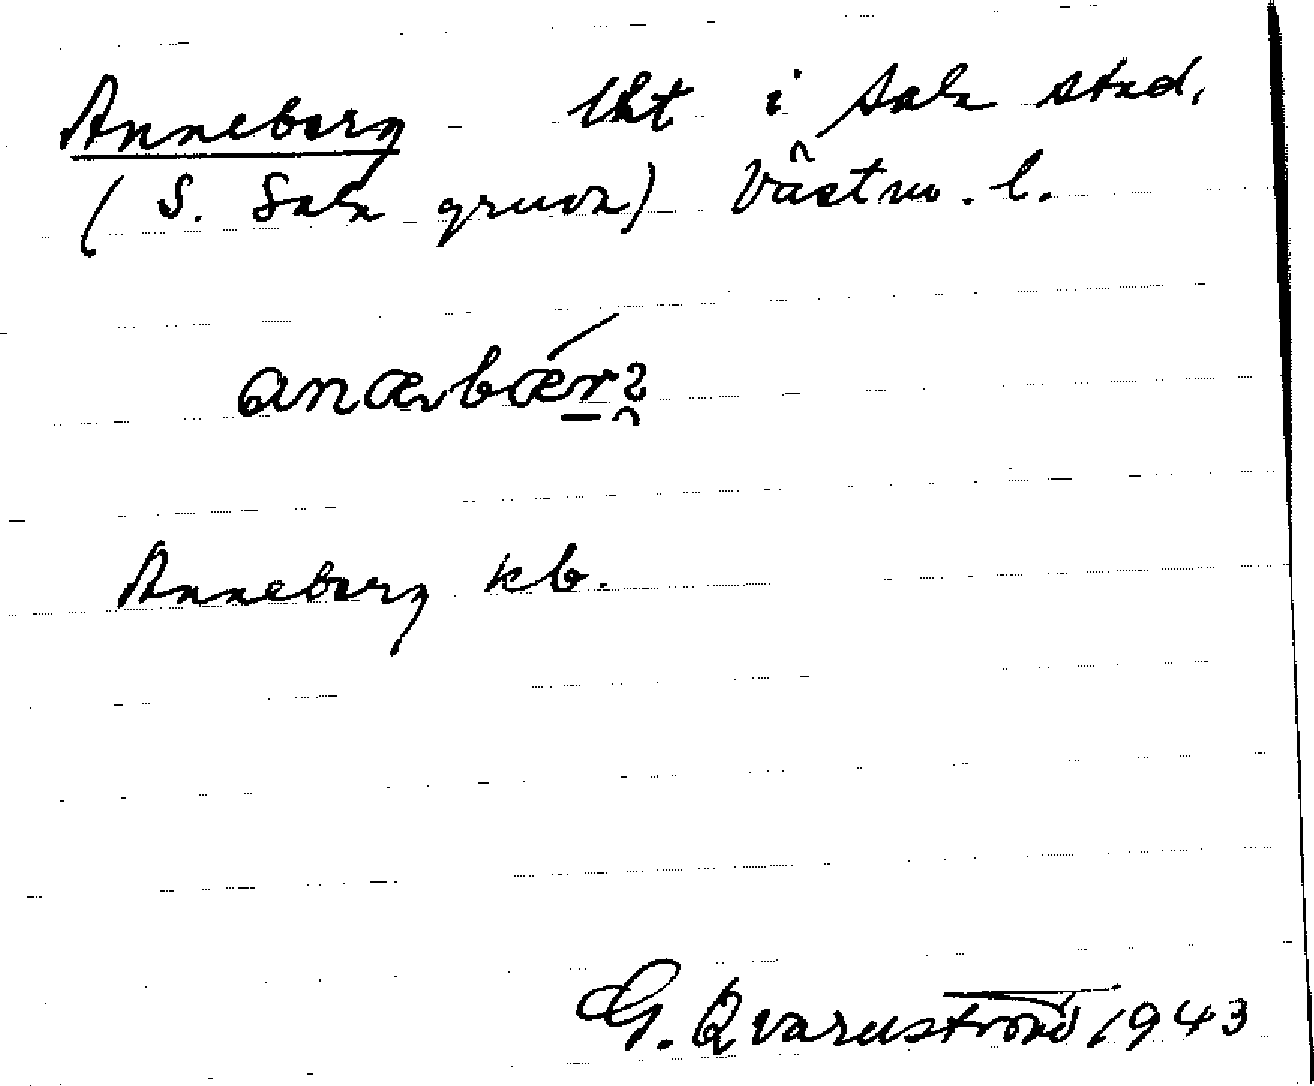 Anneberg lht i Sala stad,
(S. Sala gruva) Västm. l.
Anneberg kb.
G. Qvarnström 1943